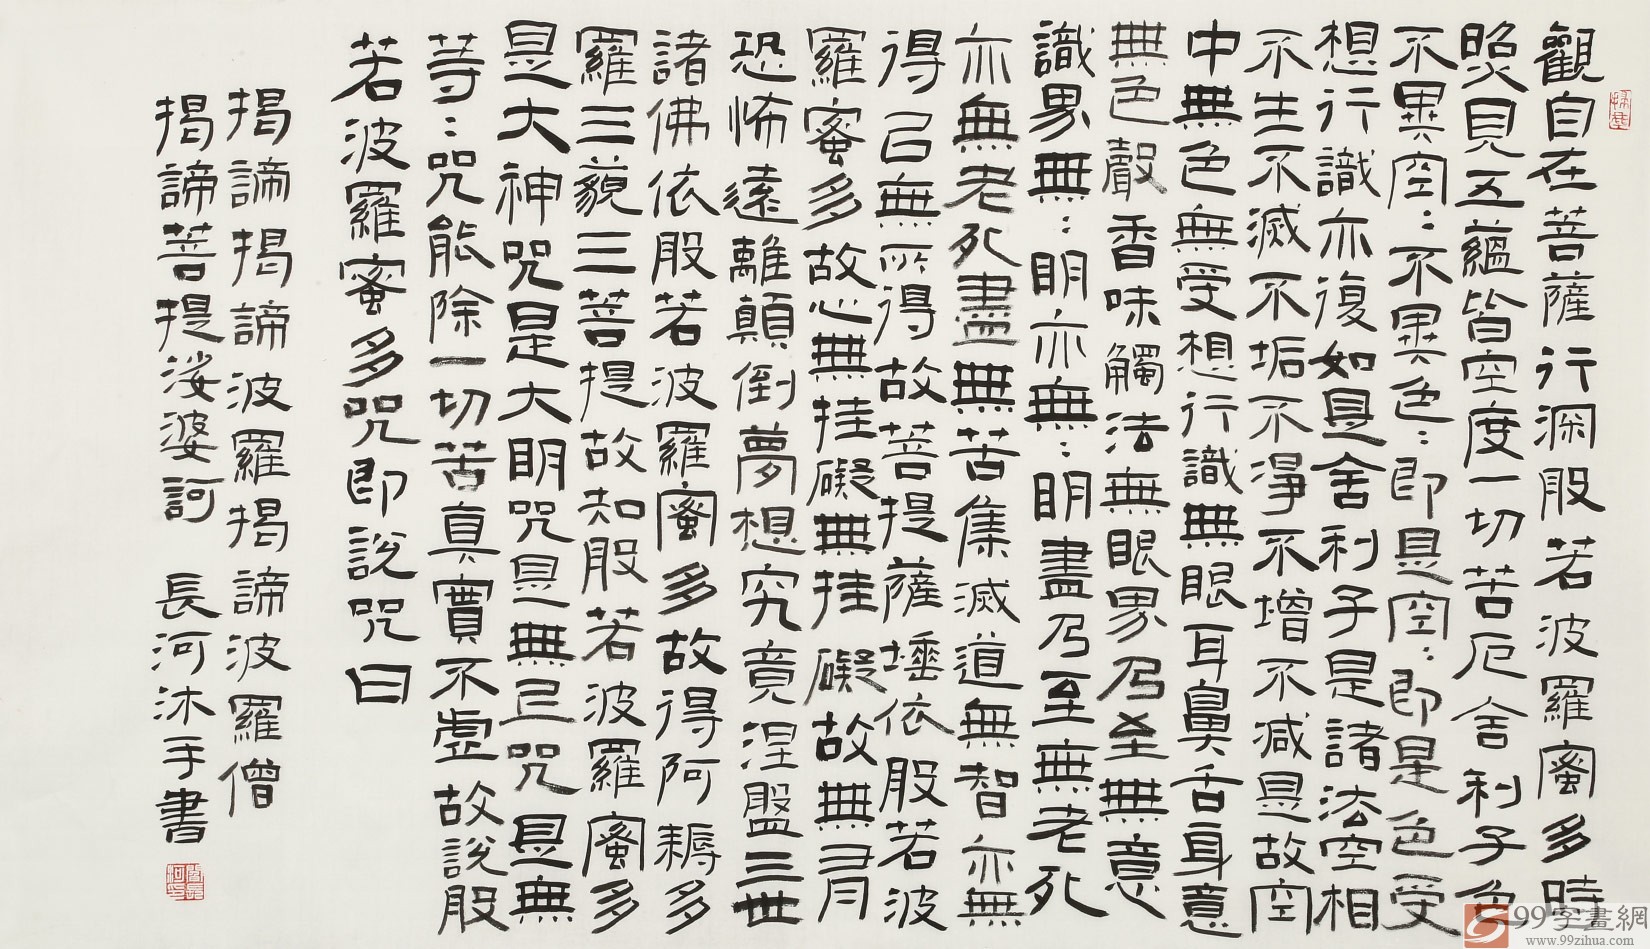 觀自在菩薩行深般若波羅蜜多時
照見五蘊皆空度一切苦厄舍利子色
不異空:不異色:即是空:即是色受
想行識亦復如是舍利子是諸法空相
不生不滅不垢不淨不增不減是故空
中無色無受想行識無眼耳鼻舌身意
無色聲香味觸法無眼界乃至無意
識界無:明亦無:明盡乃至無老死
亦無老死盡無苦集滅道無智亦無
得以無所得故菩提薩埵依般若波
羅蜜多故心無挂礙無挂礙故無有
恐怖遠離顛倒夢想究竟涅盤三世
諸佛依般若波羅蜜多故得阿耨多
羅三藐三菩提故知般若波羅蜜多
是大神咒是大明咒是無上咒是無
等:咒能除一切苦真實不虛故說般
若波羅蜜多咒即說咒曰
揭諦揭諦波羅揭諦波羅僧
揭諦菩提娑婆訶 長河沐手書
99字畫網
www.99zihua.com